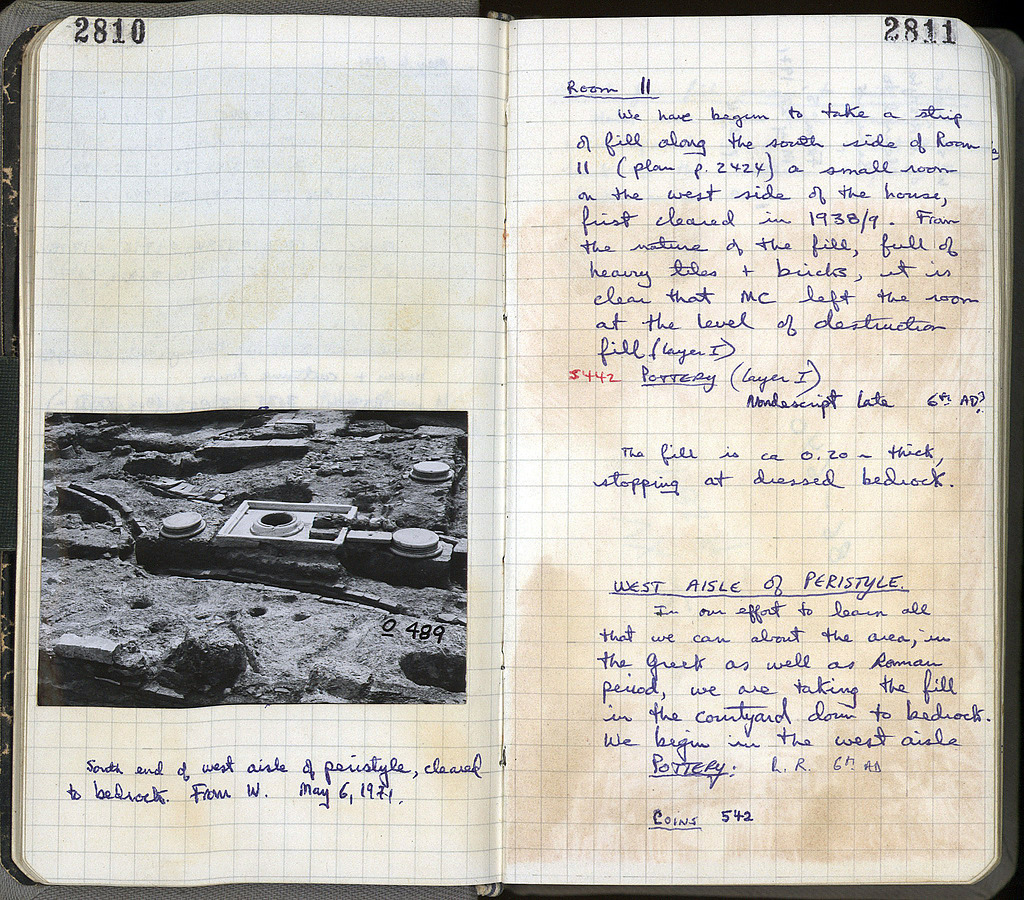 2810
O 489
South end of west aisle of peristyle, cleared
to bedrock. From W. May 6, 1971.
2811
Room 11
We have begun to take a strip
of fill along the south side of Room
11 (plan p. 2424) a small room
on the west side of the house,
first cleared in 1938/9. From
the nature of the fill, full of
heavy tiles + bricks, it is
clear that MC left the room
at the level of destruction
fill (Layer I)
5442 POTTERY (Layer I)
Nondescript Late 6th AD?
The fill is ca 0.20 m thick,
stopping at dressed bedrock.
WEST AISLE of PERISTYLE.
In our effort to learn all
that we can about the area, in
the Greek as well as Roman
period, we are taking the fill
in the courtyard down to bedrock.
We begin in the west aisle
POTTERY: L. R. 6th AD
COINS 542